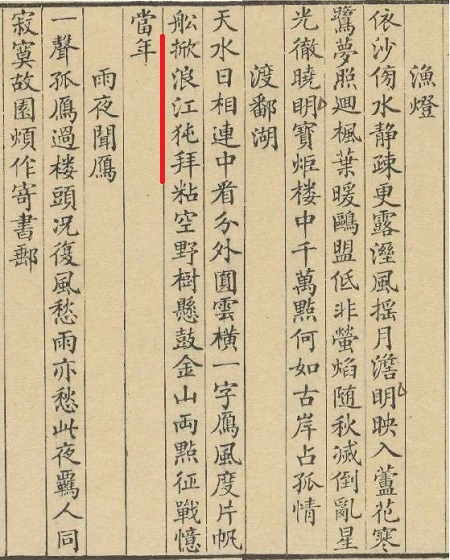 漁燈
依沙傍水静疎更露溼風揺月澹明映入蘆花寒
鷺夢照廻楓葉暖鷗盟低非螢焰随秋滅倒亂星
光徹曉明寶炬楼中千萬點何如古岸占孤情
渡鄱湖
天水日相連中看分外圓雲橫一字鴈風度片帆
舩掀浪江㹠拜粘空野樹懸鼓金山両點征戰憶
當年
雨夜聞鴈
一聲孤鴈過楼頭况復風愁雨亦愁此夜羈人同
寂寞故園煩作寄書郵